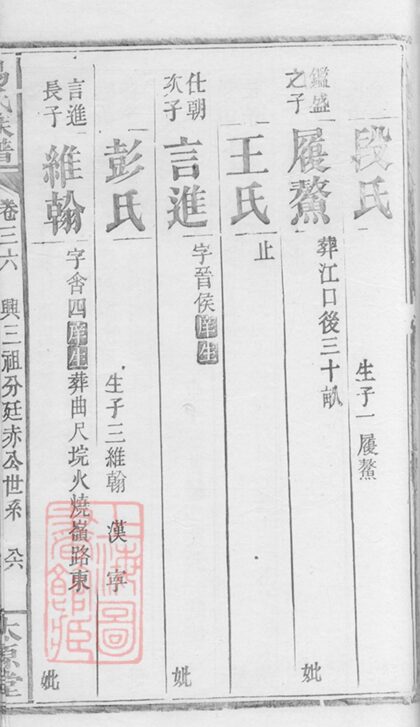 段氏 生子一履鰲
鑑盛之子 履鰲 葬江口後三十畝 妣
王氏 止
仕朝次子 言進 字晉侯庠生 妣
彭氏 生子三維翰 漢 寧
言進長子 維翰 字舍四庠生葬曲尺垸火燒嶺路東 妣
氏族譜 卷三六 興三祖分廷赤公世系 太原堂